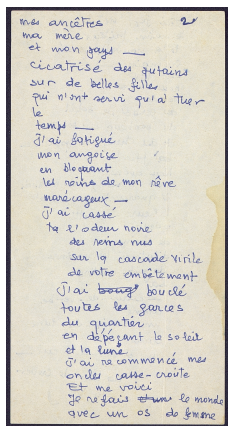 mes ancêtres 2
ma mère
et mon pays —
cicatrisé des putains
sur de belles filles
qui n'ont servi qu'à tuer
le
temps —
j'ai fatigué
mon angoise
en bloquant
les reins de mon rêve
marécageux —
j'ai cassé
l'odeur noire
des reins nus
sur la cascade virile
de votre embêtement
j'ai bouclé
toutes les garces
du quartier
en dépeçant le soleil
et la lune
j'ai recommencé mes
oncles casse-croûte
Et me voici
Je refais le monde
avec un os de femme